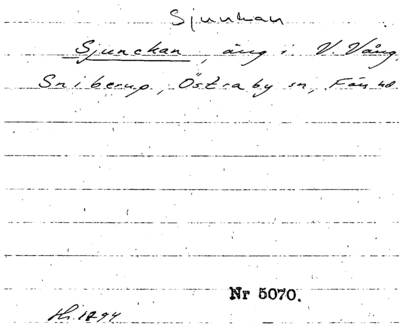 Sjunkan
Sjunckan, äng i V. Vång,
Sniberup, Östraby sn, Färs hd.
Nr 5070.
Hr. 1794